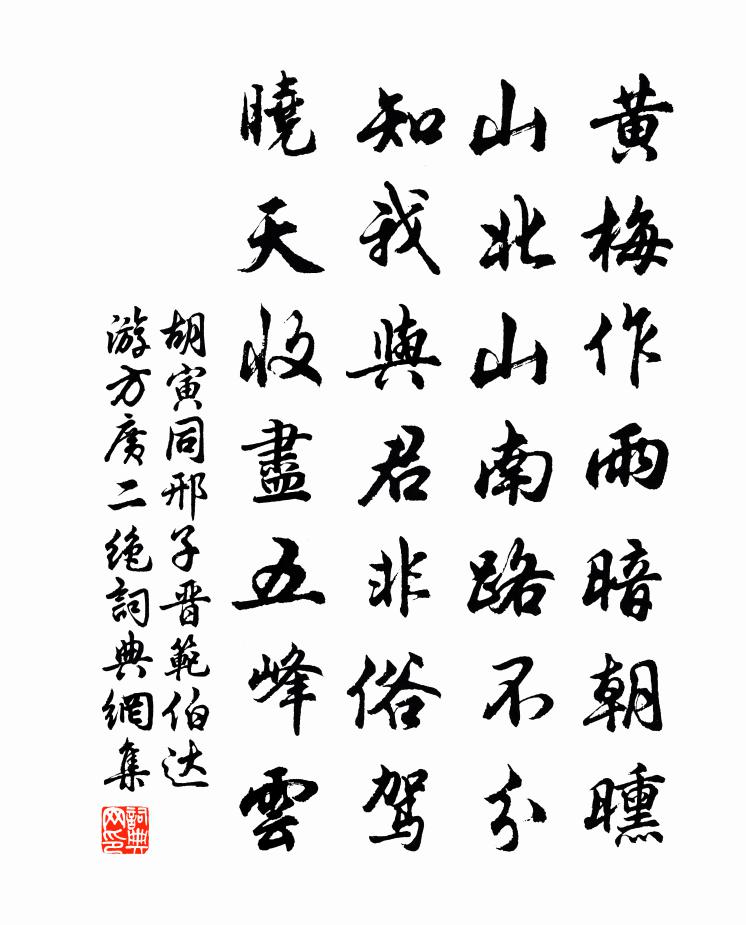 黄梅作雨暗朝曛
山北山南路不分
知我與君非俗駕
曉天收盡五峰雲
胡寅同邢子晋範伯达
游方廣二绝詞典網集
詞典网印